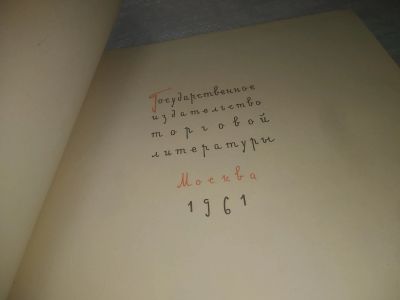 Государственное
издательство
торговой
литературы
Москва
1961